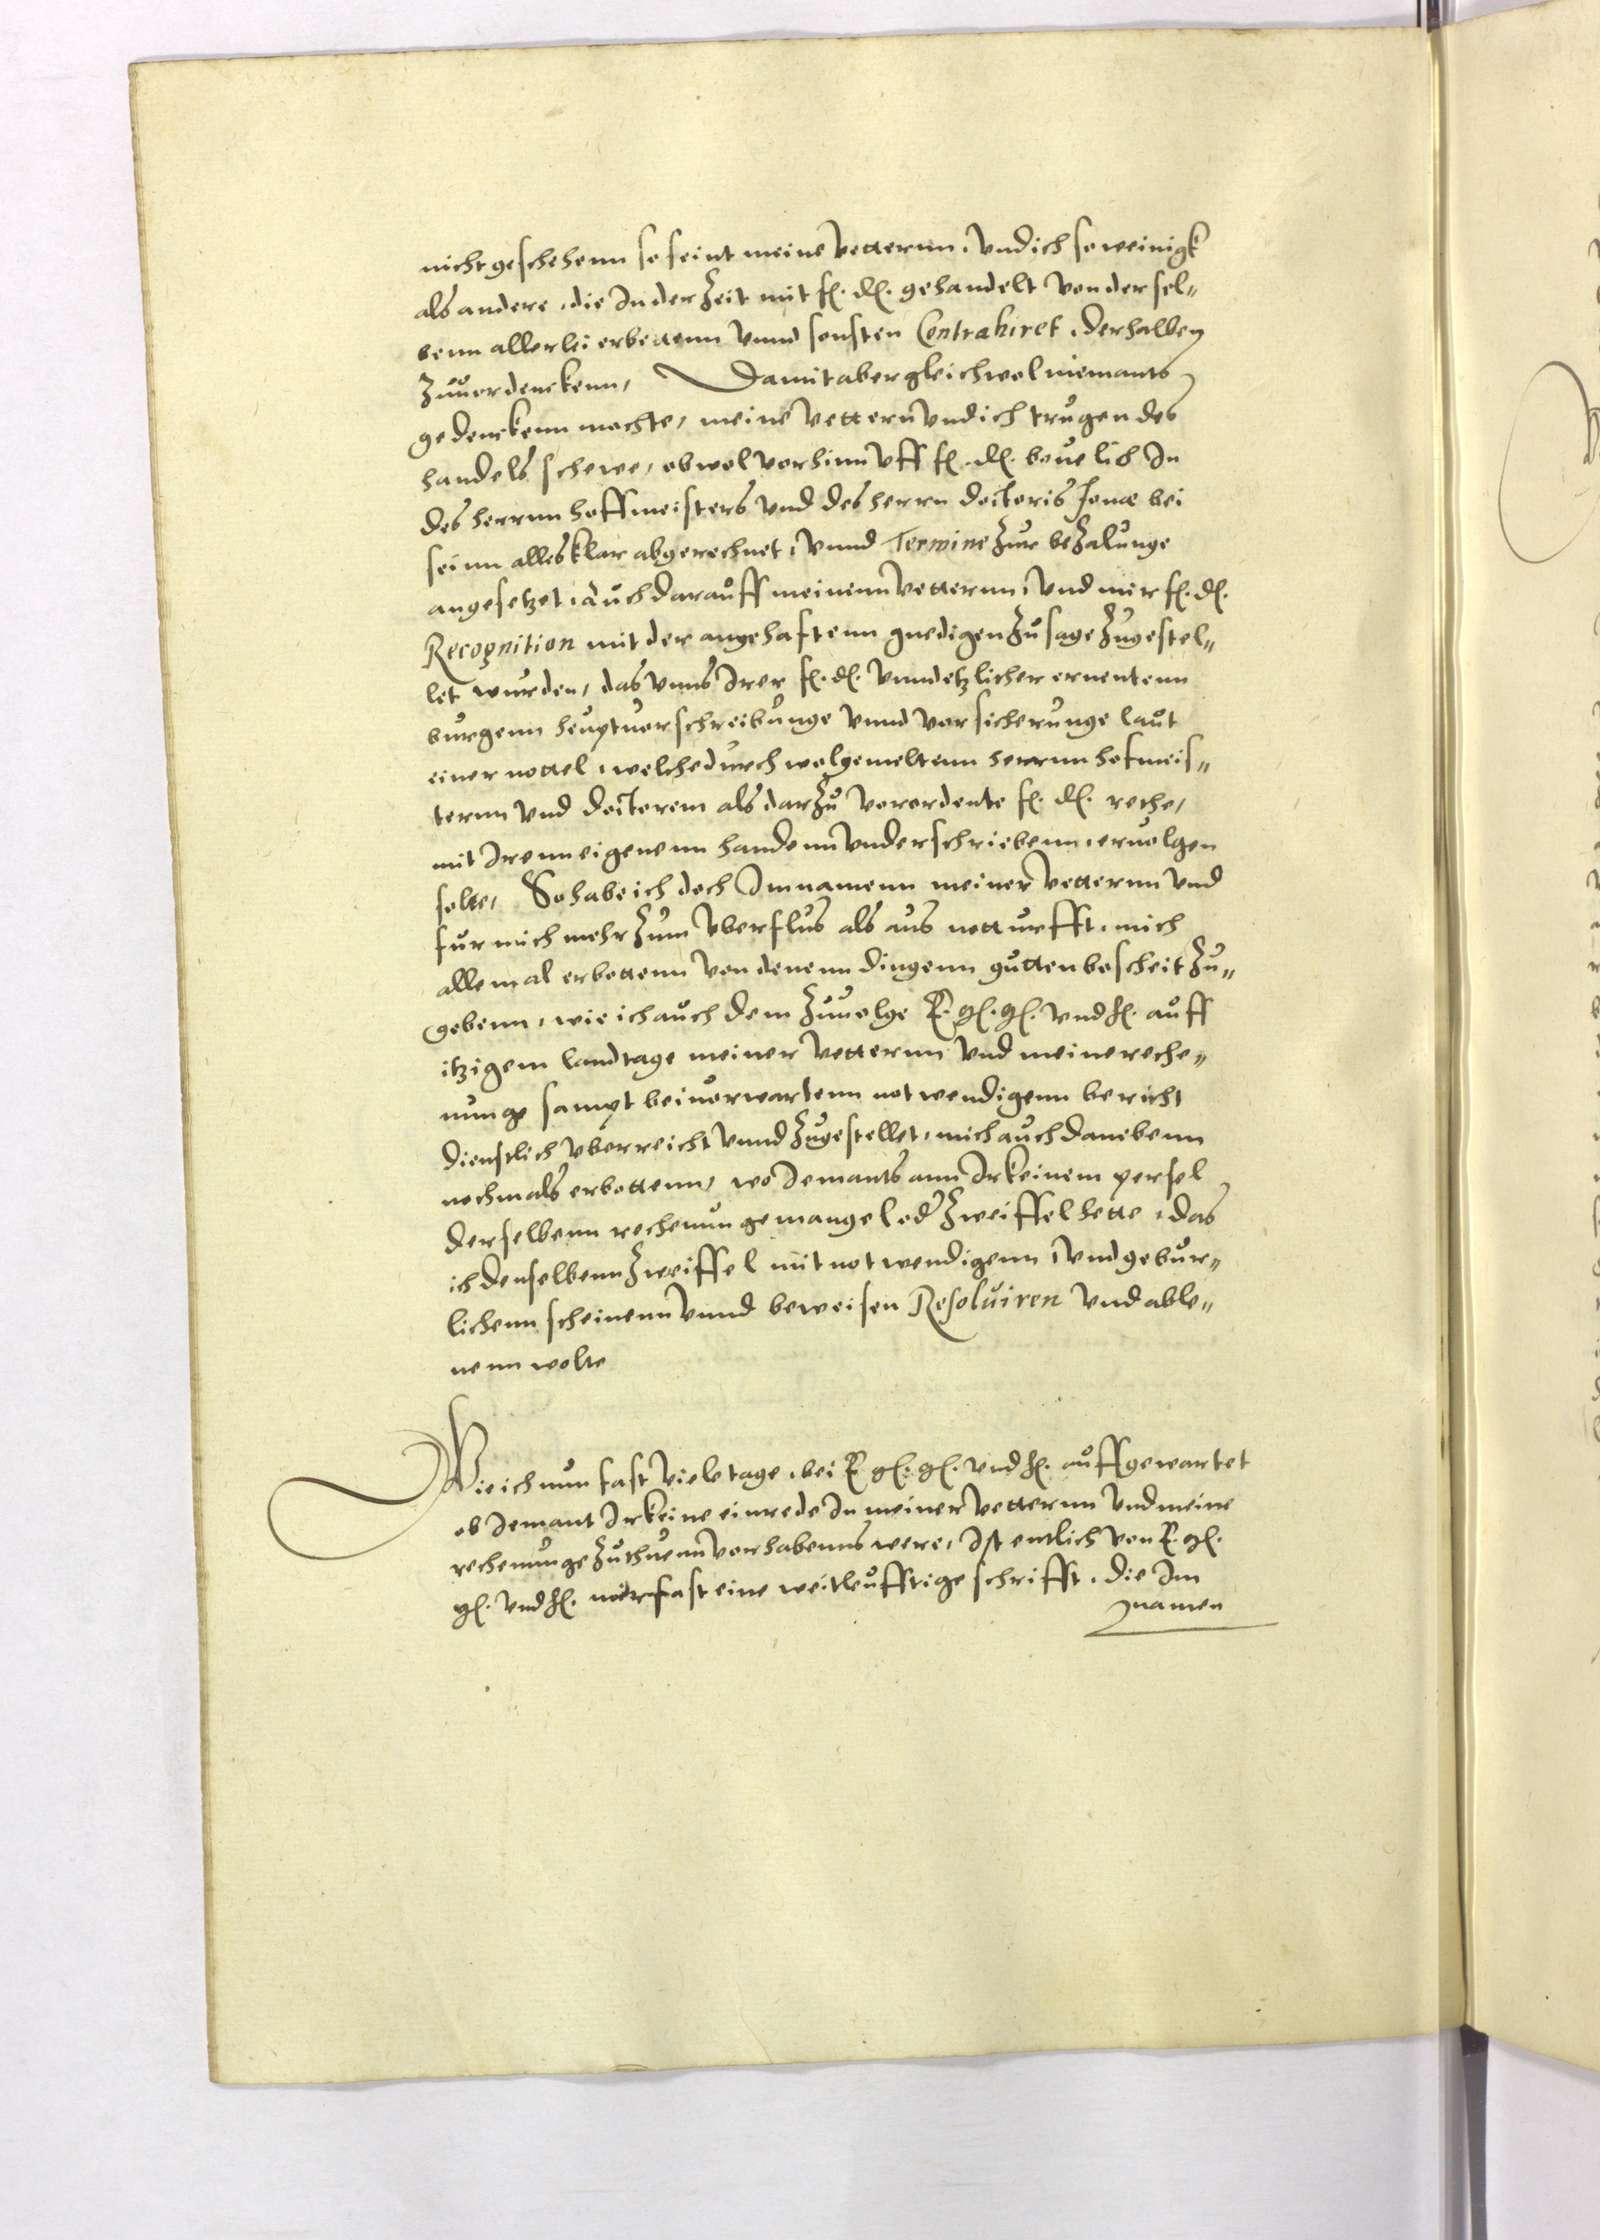 nicht geschehenn so seint meine Vetternn, Vnd ich so weinigk
als andere, die In der Zeit mit f. d. gehandelt Von dersel„
benn allerlei erbettenn Vnnd sonsten Contrahiret, derhalben
Zuuordenckenn, Damit aber gleichwol niemants
gedenckenn mochte, meine Vetternn Vnd ich trugen des
handels schewe, obwol vorhinn Vff f. d. beuelich In
des herrnn hoffmeisters Vnd des herrn doctoris Jonæ bei
seinn alles klar abgerechnet, Vnnd Termine Zur beZalunge
angesetzet, auch darauff meinenn Vetternn, Vnd mir f. d.
Recognition mit der angehafftenn gnedigen Zusage Zugestel„
let wurden, das Vnns Irer f. d. Vnnd etzlicher ernentenn
burgenn heuptuorschreibunge Vnnd Vorsicherunge laut
einer nottel, welche durch wolgemeltenn herrnn hofmeis„
ternn Vnd doctorem als darZu Verordente f. d. rethe,
mit Irenn eigenenn handenn Vnderschriebenn, eruolgen
solte, So habe ich doch Im namenn meiner Vetternn Vnd
fur mich mehr Zum Vberflus als aus notturfft, mich
allemal erbottenn Von denenn dingenn gutten bescheit Zu„
gebenn, wie ich auch dem Zuuolge E. g. g. Vnd h. auff
itzigem landtage meiner Vetternn Vnd meine reche„
nunge sampt beiuorwartenn notwendigenn bericht
dienstlich Vberreicht Vnnd Zugestellet, mich auch danebenn
nochmals erbottenn, wo Iemants ann Irkeinem persel
derselbenn rechenunge mangel oder Zweiffel hette, das
ich denselbenn Zweiffel mit notwendigenn, Vnd gebur„
lichenn scheinenn Vnnd beweisen Resoluiren Vnd able„
nenn wolte
Wie ich nun fast Viele tage, bei E. g. g. Vnd h. auffgewartet
ob Iemant Irkeine einrede In meiner Vetternn Vnd meine
rechenunge Zuthuenn Vorhabenns were, Ist entlich Von E. g.
g. Vnd h. mir fast eine weitleufftige schrifft, die Im
namen